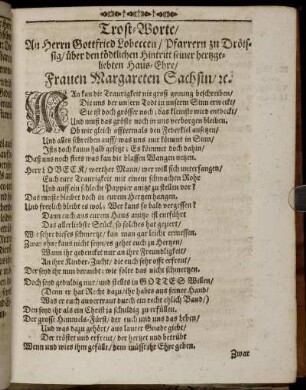 Trost-Worte/
An Herrn Gottfried Lobecken/ Pfarrern zu Dröis-
sig/ über den tödlichen Hintritt seiner hertzge-
liebten Haus-Ehre/
Frauen Margareten Sachsin/ ꝛc.
MAn kan die Traurigkeit nie groß genung beschreiben/
Die uns der unsern Todt in unserm Sinn erweckt/
Sie ist doch grösser noch/ das kleinste wird entdeckt/
Und muß das gröste noch in uns verborgen bleiben.
Ob wir gleich offtermals den Federkiel ansetzen/
Und alles schreiben auff/ was uns nur kömmt in Sinn/
Ists doch kaum halb gesetzt: Es kümmet doch dahin/
Daß uns noch stets was kan die blassen Wangen netzen.
Herr LOBECK/ werther Mann/ wer will sich unterfangen/
Euch eure Traurigkeit mit einem schwachen Rohr
Und auff ein schlecht Pappier anitzt zu stellen vor?
Das meiste bleibet doch in eurem Hertzen hangen.
Und freylich bleibt es wol; Wer kan so bald vergessen?
Dann euch aus eurem Haus anitzo ist entführt
Das allerliebste Stück/ so solches hat geziert/
Wie sehre dieses schmertze/ kan man gar leicht ermessen.
Zwar ohne/ kans nicht seyn/ es gehet euch zu Hertzen/
Wann ihr gedencket nur an ihre Freundligkeit/
An ihre Kinder-Zucht/ die euch sehr offt erfreut/
Der seyd ihr nun beraubt: wie solte das nicht schmertzen.
Doch seyd gedultig nur/ und stellts in GOTTES Willen/
(Denn er hat Recht dazu/ ihr habts aus seiner Hand/
Was er euch anvertraut durch ein recht ehlich Band/)
Den seyd ihr als ein Christ ja schuldig zu erfüllen.
Der grosse Himmels-Fürst/ der euch und uns das geben/
Und was dazu gehört/ aus lauter Gnade giebt/
Der tröstet und erfreut/ der hertzet und betrübt
Wenn und wies ihm gefällt/ dem müsst ihr Ehre geben.
Zwar